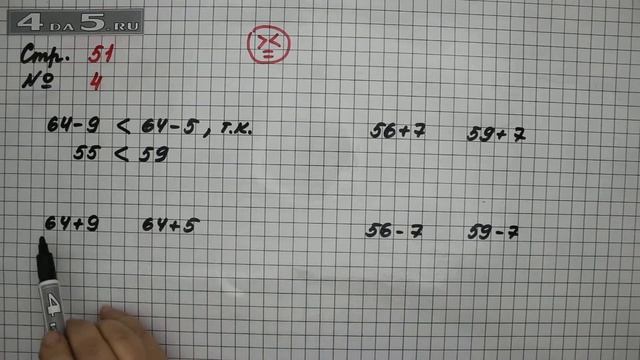 4DA5.RU
Стр. 51
№ 4
> <
=
64-9 < 64-5, т.к.
55 < 59
56+7 59+7
64+9 64+5
56-7 59-7
4